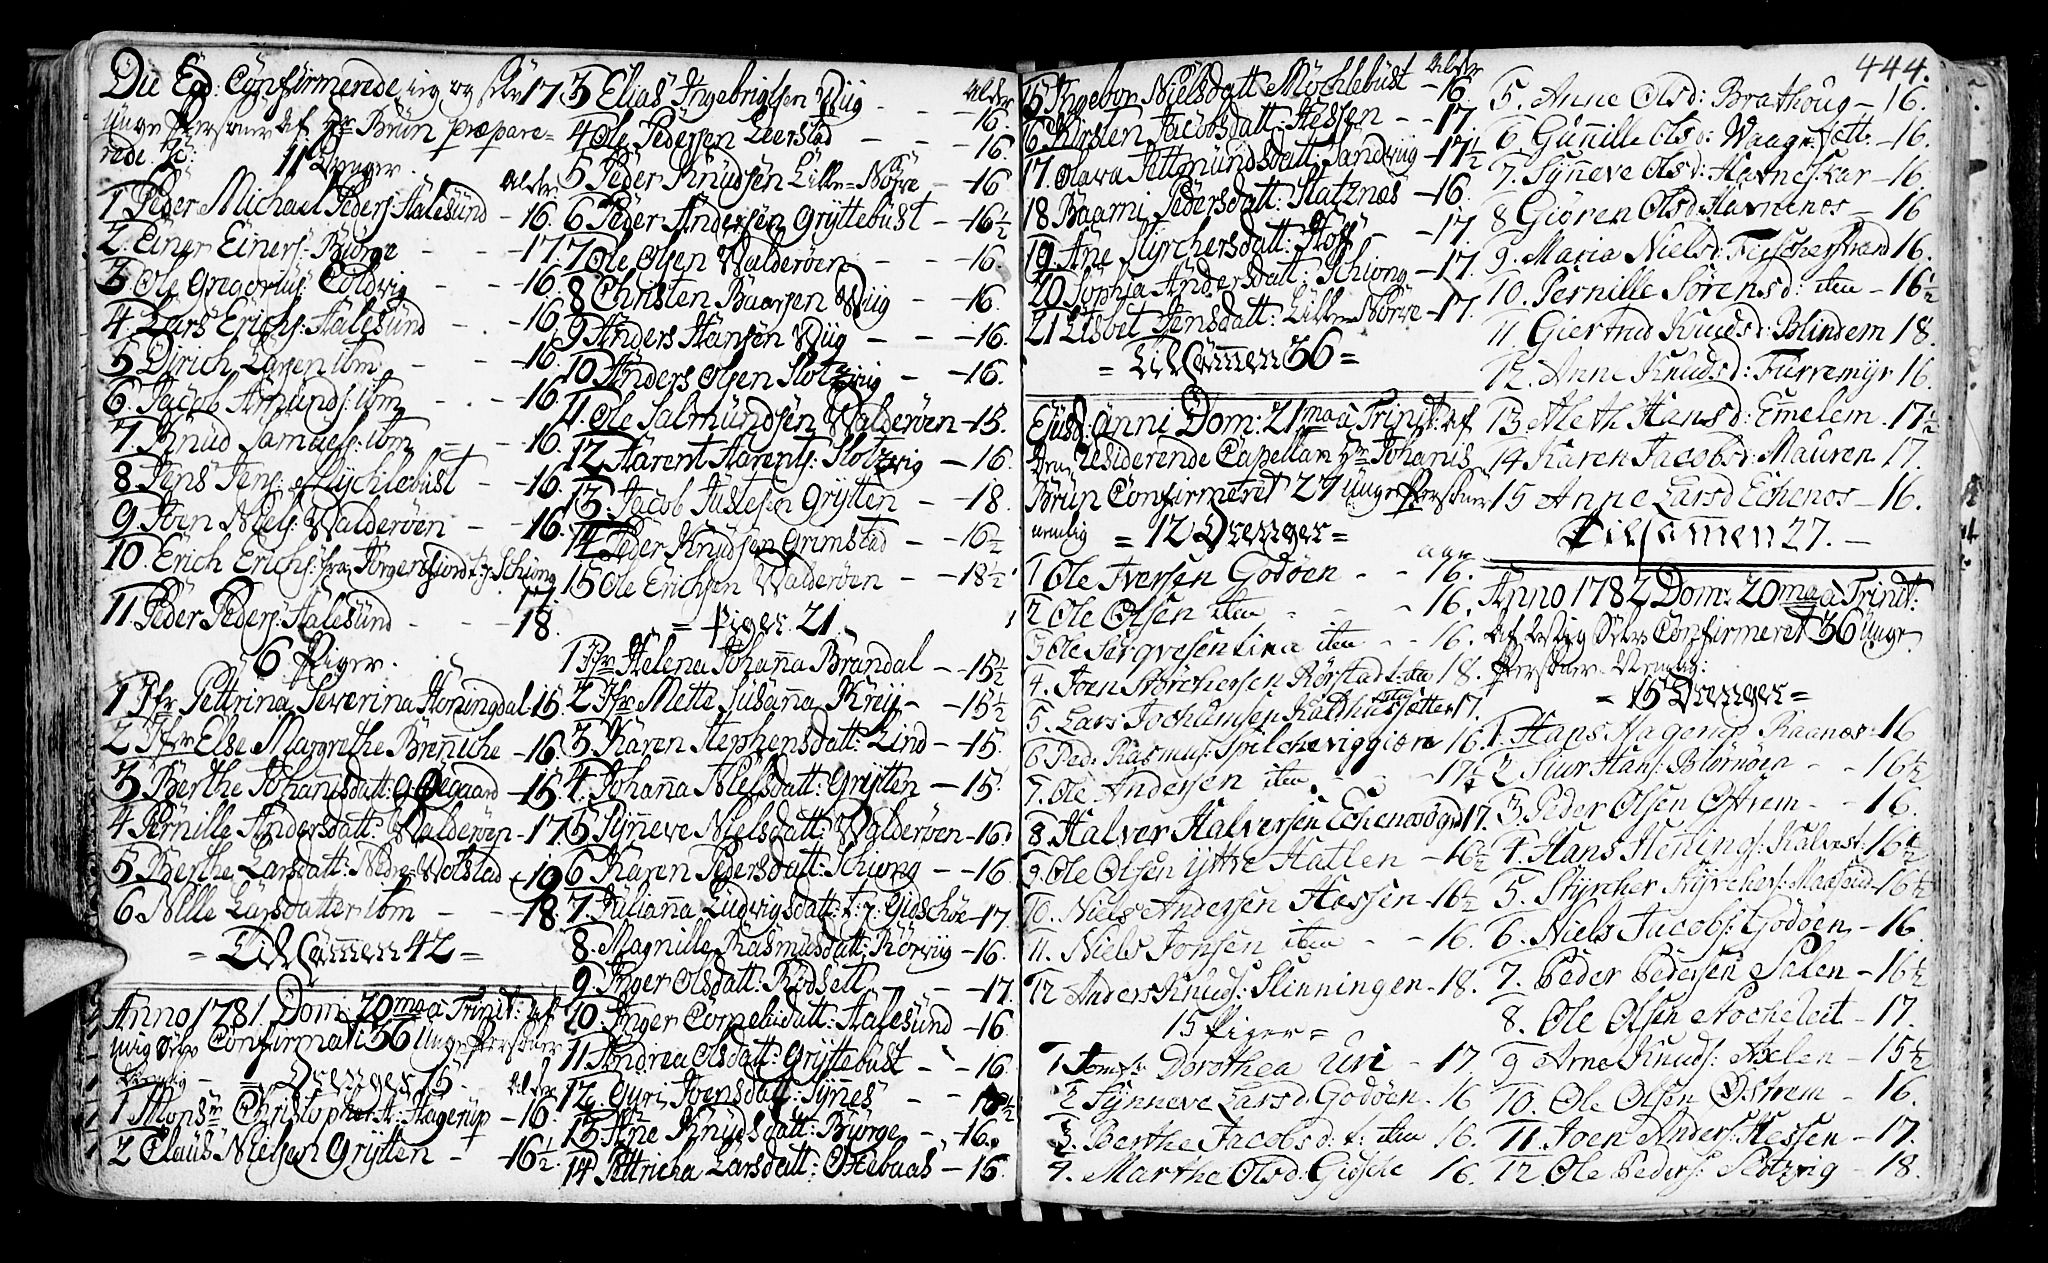 Die Eod: Confirmerede ieg og selv 17
unge Personer af Hr Brun præpare=
rede. 
11 Drenger.
Alder
1 Peder Michael Peders: Halesund - 16.
2. Einer Einers: Biørge - - 17.
3 Ole Gregorius: Coldvig - - 16.
4. Lars Erichs: Halesund - - 16
5 Dirich Larsen ibm - - 16.
6. Jacob Amunds: ibm - - 16.
7. Knud Samuels: ibm - - 16.
8. Jens Jens: Mychlebust - 16.
9. Joen Niels: Walderöen - - 16.
10. Erich Erichs: fra Jørgenfiord t: j: Schiong
17.
11. Peder Peders: Halesund - - 18.
6 Piger.
1 Jfr Pettrina Severina Honingdal - 15.
2 Jfr Else Margrethe Brenniche - 16.
3 Berthe Johannsdatt: Ødegaard - 15.
4 Pernille Andersdatt: Walderöen - 17.
5 Berthe Larsdatt: Nedre-Wolstad - 19
6 Nille Larsdatter ibm - - 18.
= Tilsamen 42 =
Anno 1781. Dom: 20ma a Trinit: af
mig Confirmati 36 Unge Personer
Nemlig - = Drenger 15. Alder
1 Monsr Christopher H: Hagerup - 16.
2 Claus Nielsen Grytten - 16½.
Alder
3 Elias Ingebrigtsen Wiig - - 16.
4 Ole Pedersen Leerstad - - 16.
5 Peder Knudsen Lille=Nørve - 16
6 Peder Andersen Gryttebust - 16½
7 Ole Olsen Walderöen - - 16.
8 Christen Baarsen Wiig - - 16.
9 Anders Hansen Wiig - - 16.
10 Anders Olsen Slotzvig - - 16.
11. Ole Salmundsen Walderöen - 15.
12 Harent Harents: Slotzvig - 16.
13. Jacob Justesen Grytten - - 18
14 Peder Knudsen Grimstad - - 16½
15 Ole Erichsen Walderöen - - 18½
= Piger 21.
1 Jfr Helena Johanna Brandal - 15½
2 Jfr Mette Susanna Krug - - 15½
3 Karen Stephensdatt: Lind - - 15.
4. Johanna Nielsdatt: Grytten - 15.
5 Synneve Nielsdatt: Walderöen - 16.
6 Karen Pedersdatt: Schiong - - 16.
7. Julianna Ludvigsdatt: t: j: Gidschöe - 17.
8. Magnille Rasmusdatt: Rörviig - 16.
9 Inger Olsdatt: Rödsett - - 17.
10. Inger Cornelidatt: Halesund - 16.
11 Andrea Olsdatt: Gryttebust - - 16.
12. Gyri Joensdatt: Synes - - 16½
13 Ane Knudsdatt: Biørge - 16.
14 Pettricha Larsdatt: Oxebaas - 16.
Alder
15 Ingebor Nielsdatt: Mychlebust - 16.
16 Kirsten Jacobsdatt: Hessen - - 17.
17. Olava Pettmundsdatt: Sandviig - 17½
18 Baarni Pedersdatt: Statznes - 16.
19 Ane Styrchersdatt: Hoff - - 17
20 Sophia Andersdatt: Schiong - 17.
21 Lisbet Jensdatt: Lille Nörve - 17.
= Tilsamen 36 =
Ejusd: anni Dom: 21ma a Trinit: af
den residerende Capellan Hr Johanis
Brun Confirmeret 27 Unge Personer
nemlig = 12 Drenger =
1 Ole Iversen Godöen - - 16.
2 Ole Olsen item - - 16.
3 Ole item - - 16.
4. Joen Störchersen Rörstad t: 18.
5. Lars Jochumsen Kaldhussætter 17.
6 Ped: Rasmus: Spilcheviggien 16.
7. Ole Andersen item - 17½
8 Halver Halversen Echenos 17.
9. Ole Olsen Yttre Hatlen - 16½
10. Niels Andersen Hessen - 16½
11. Niels Jonsen item - - 16.
12 Anders Knuds: Slinningen - 18.
15 Piger =
1 Jomf: Dorothea Uri - 17.
2 Synneve Larsd: Godöen - 16
3. Berthe Jacobsd: t: item 16.
4. Marthe Olsd: Gidsche 16.
444.
5. Anne Olsd: Brathoug - 16.
6. Gunnille Olsd: Waagesett: - 16.
7. Synneve Olsd: Havneskar - 16.
8 Giören Olsd: Havnenos - 16
9. Maria Nielsd: Fischerstrand 16.
10. Pernille Sörensd: item - 16½
11. Giertrud Knudsd: Blindem 18.
12. Anne Knudsd: Furremyr 16.
13 Aleth Hansd: Emelem. 17½
14 Karen Jacobsd: Mauren 17.
15 Anne Larsd Echenos - 16.
Tilsamen 27. -
Anno 1782 Dom: 20ma a Trinit:
af Mig Selv Confirmeret 36 Unge
Personer Nemlig:
= 15 Drenger =
1. Hans Hagerup Raanes: 16
2 Siur Hans: Blörnöen - - 16½
3. Peder Olsen Ostrem - - 16.
4. Hans Henings: Kalvest: 16½
5. Styrcher Styrchers: Maaseid - 16½
6. Niels Jacobs: Godöen - 16.
7. Peder Pedersen Salen - 16½
8. Ole Olsen Nocheleit - 17.
9 Arne Knuds: Aselen - 15½
10. Ole Olsen Östrem - 16.
11. Joen Anders: Hessen - 17.
12. Ole Peders: Slotzvig - 18.